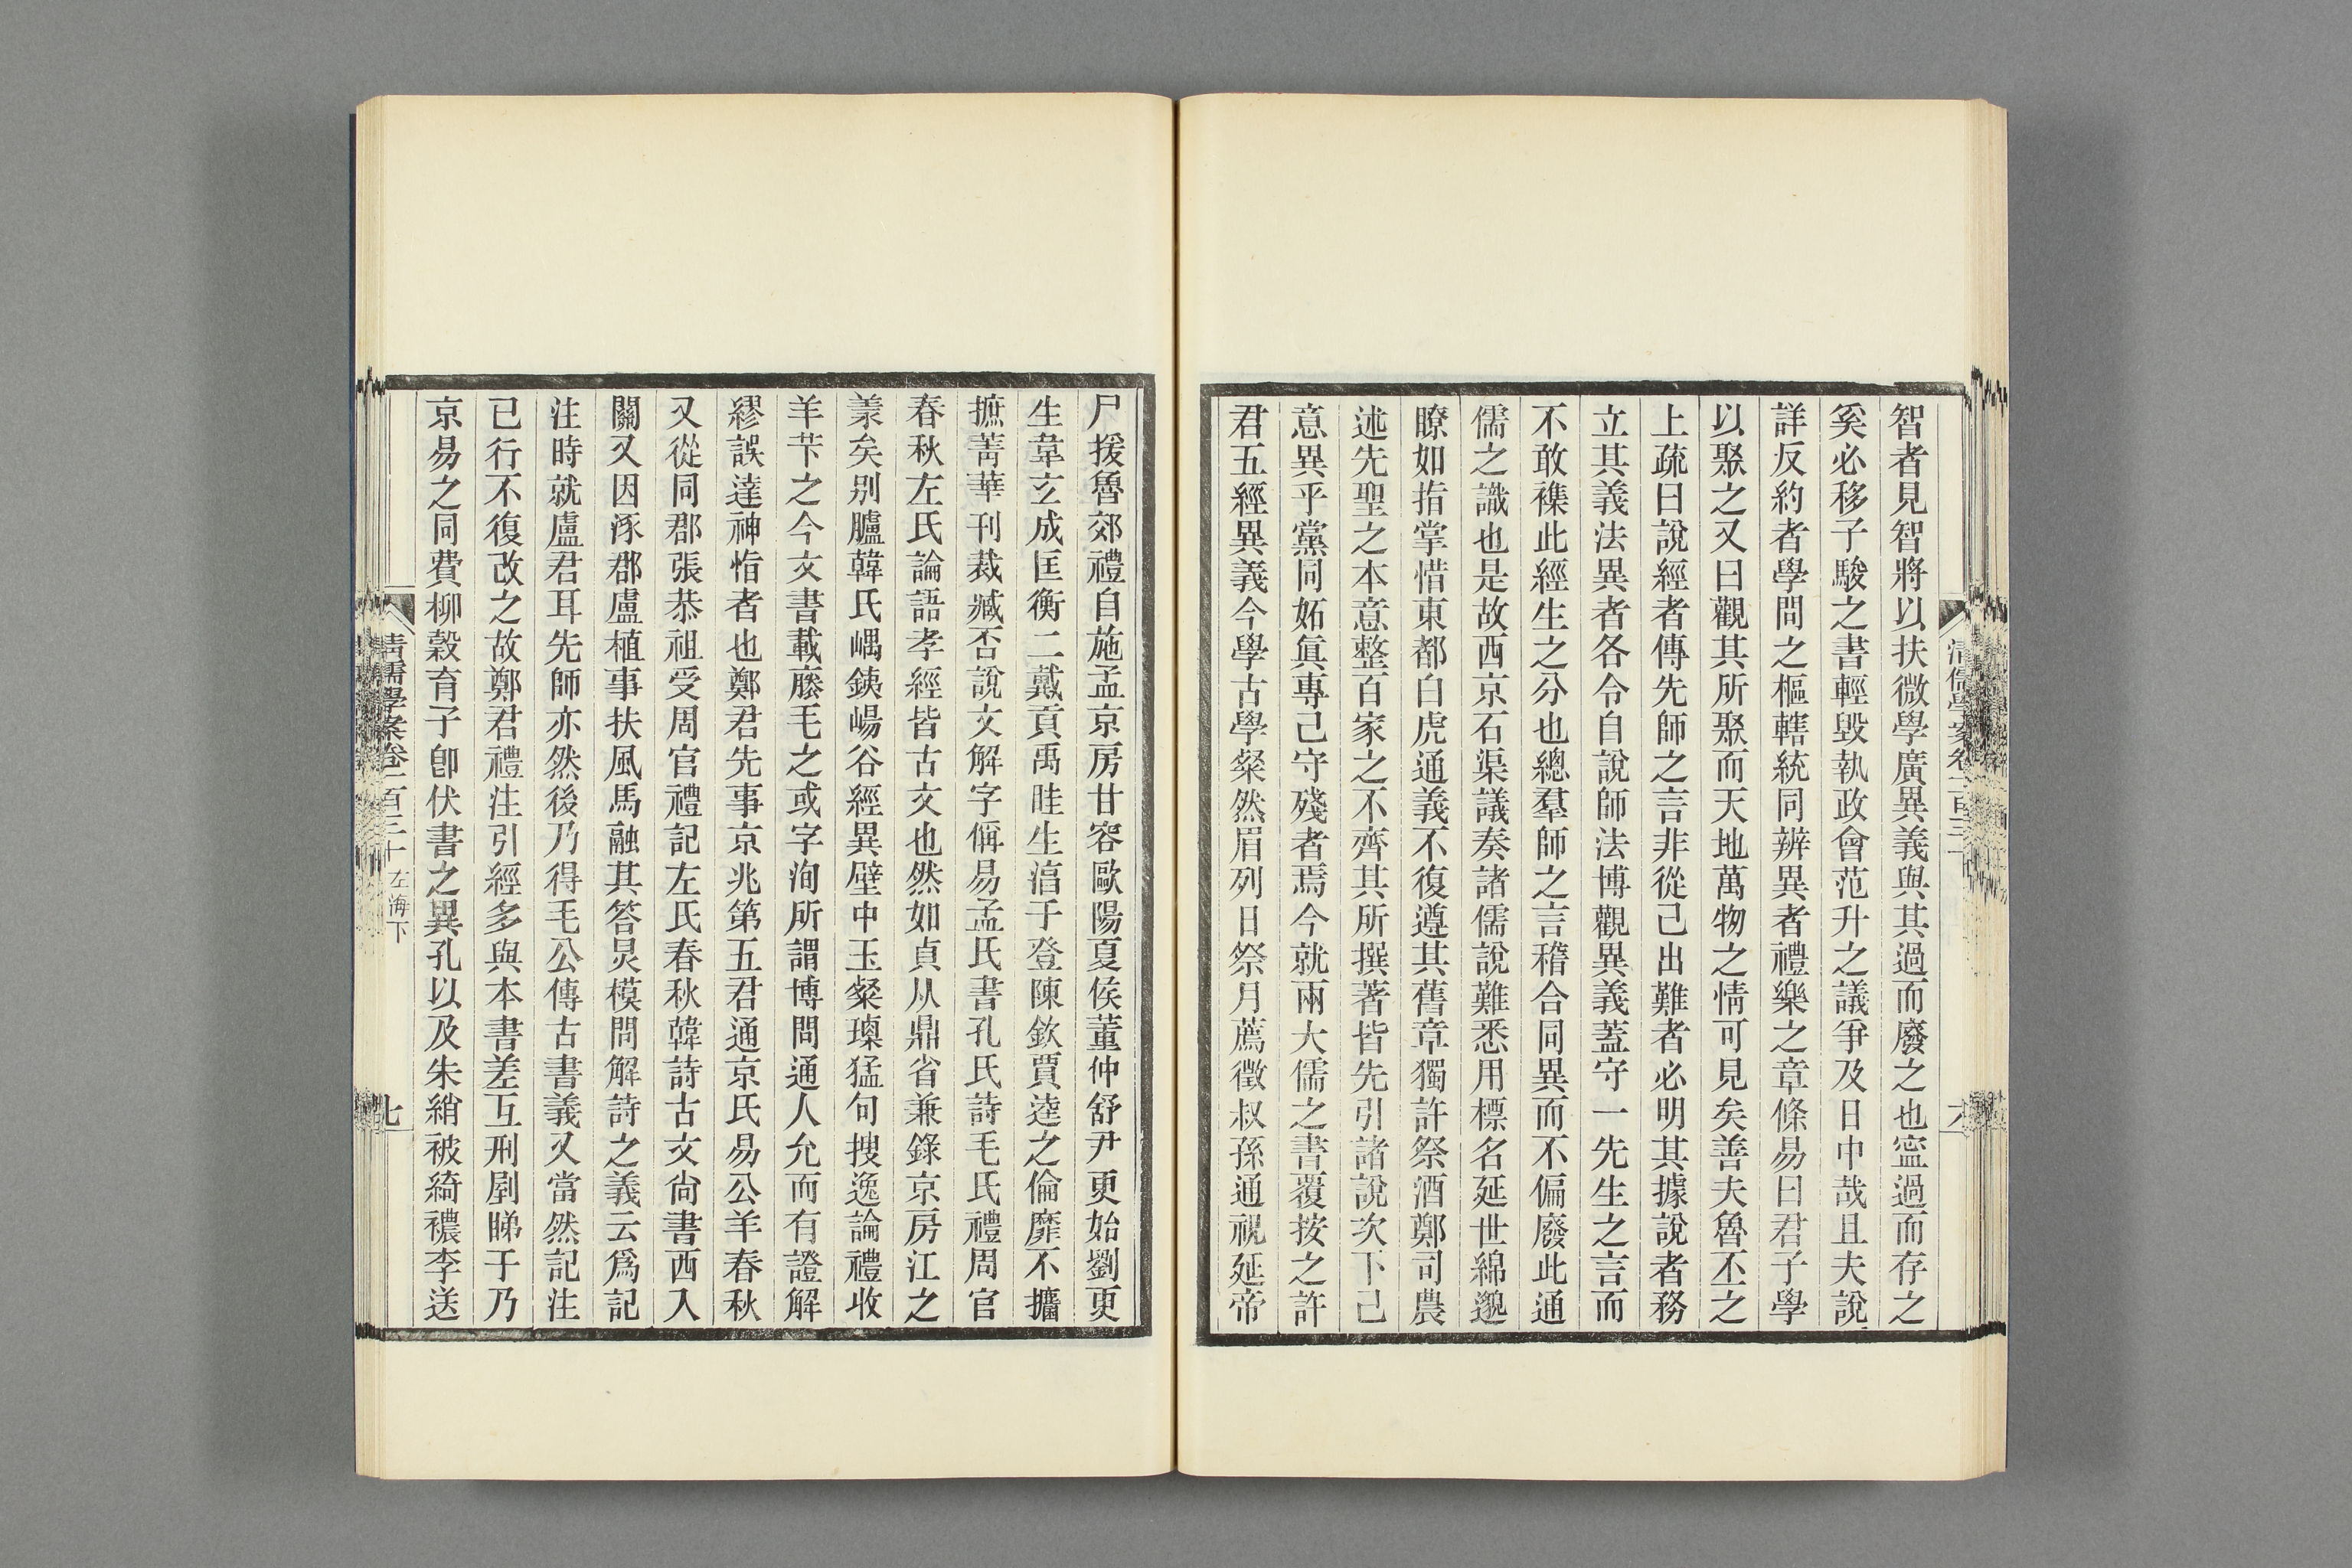 智者見智將以扶微學廣異義與其過而廢之也寍過而存之
奚必移子駿之書輕毀執政會范升之議爭及日中哉且夫說
詳反約者學問之樞轄統同辨異者禮樂之章條易曰君子學
以聚之又曰觀其所聚而天地萬物之情可見矣善夫魯丕之
上疏曰說經者傳先師之言非從己出難者必明其據說者務
立其義法異者各令自說師法博觀異義蓋守一先生之言而
不敢襍此經生之分也總羣師之言稽合同異而不偏廢此通
儒之識也是故西京石渠議奏諸儒說難悉用標名延世綿邈
瞭如指掌惜東都白虎通義不復遵其舊章獨許祭酒鄭司農
述先聖之本意整百家之不齊其所撰著皆先引諸說次下己
意異乎黨同妬眞專己守殘者焉今就兩大儒之書覆按之許
君五經異義今學古學粲然眉列日祭月薦徵叔孫通祝延帝
尸援魯郊禮自施孟京房甘容歐陽夏侯董仲舒尹更始劉更
生韋玄成匡衡二戴貢禹眭生淯于登陳欽賈逵之倫靡不攟
摭菁華刊裁臧否說文解字偁易孟氏書孔氏詩毛氏禮周官
春秋左氏論語孝經皆古文也然如貞从鼎省兼錄京房江之
羕矣別臚韓氏嵎銕崵谷經異壁中玉粲璪猛句搜逸論禮收
羊芐之今文書載䕨毛之或字洵所謂博問通人允而有證解
繆誤達神恉者也鄭君先事京兆第五君通京氏易公羊春秋
又從同郡張恭祖受周官禮記左氏春秋韓詩古文尙書西入
關又因涿郡盧植事扶風馬融其答炅模問解詩之義云爲記
注時就盧君耳先師亦然後乃得毛公傳古書義又當然記注
已行不復改之故鄭君禮注引經多與本書差互刑剭睇于乃
京易之同費柳穀育子卽伏書之異孔以及朱綃被綺襛李送
清儒學案卷一百三十 左海下
七